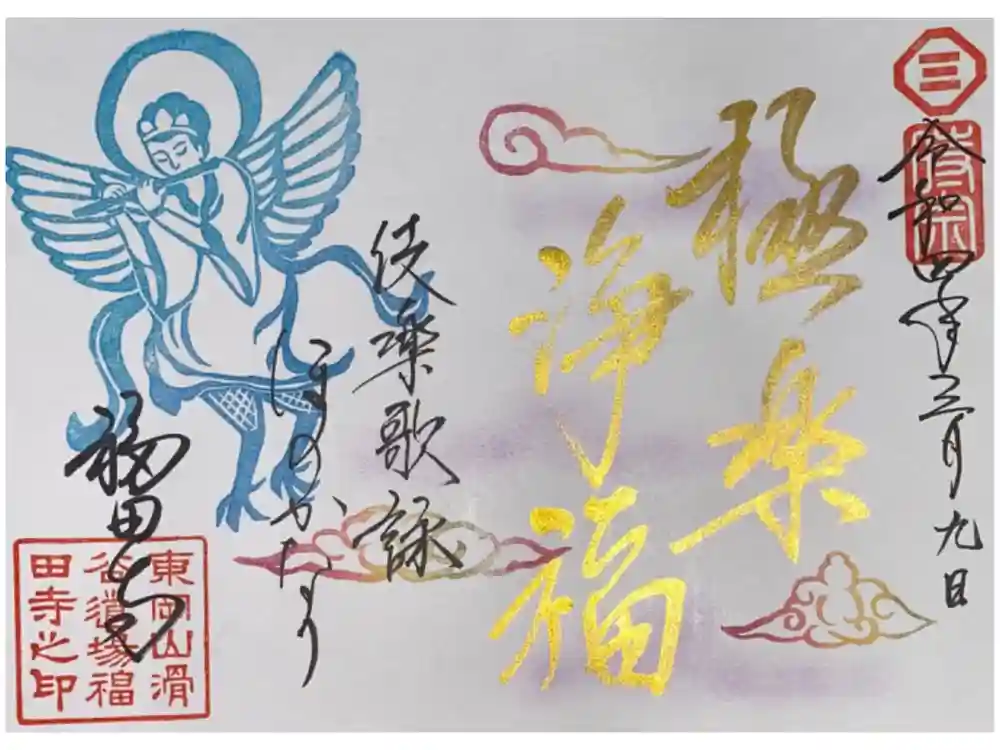 三
時宗
令和四年三月九日
極楽
浄福
伎楽歌詠
ほのかなり
福田寺
東岡山滑
谷道場福
田寺之印